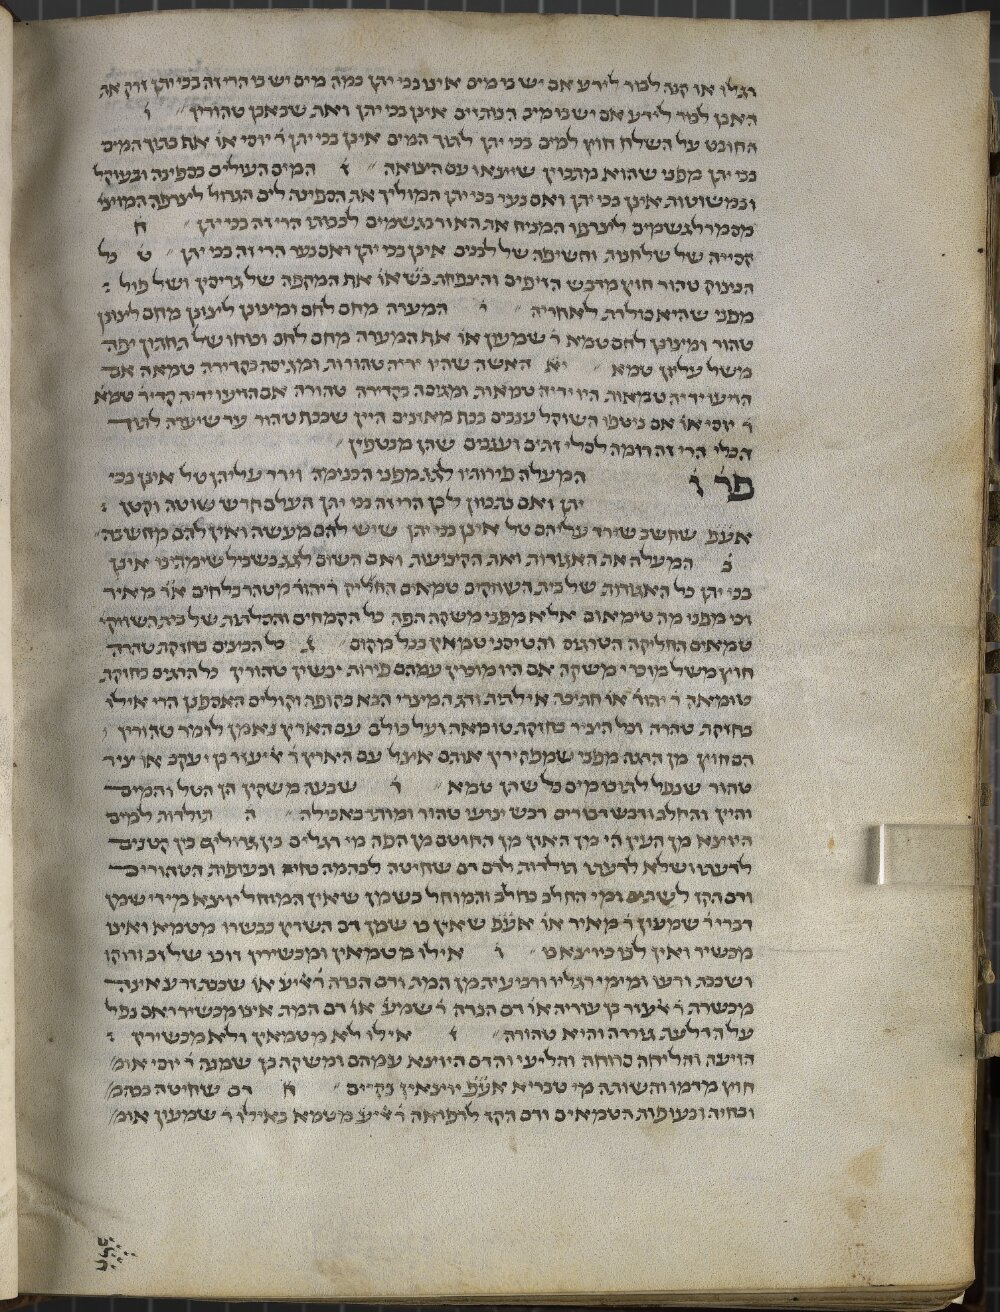 רגלו או קנה לבור לידע אם יש בו מים אינו בכי יתן כמה מים יש בו הרי זה בכי יתן זרק את
האבן לבור לידע אם יש בו מים הניתזים אינן בכי יתן ואת שבאבן טהורין ו
החובט על השלח חוץ למים בכי יתן לתוך המים אינן בכי יתן ר יוסי או את בתוך המים
בכי יתן מפני שהוא מתכוין שייצאו עם הצואה ז המים העולים בספינה ובעוקל
ובמשוטות אינן בכי יתן ואם נער בכי יתן המוליך את הספינה לים הגדול לצרפה המוציא
מסמר לגשמים לצרפו המניח את האור בגשמים לכבותו הרי זה בכי יתן ח
קסייה של שלחנות וחשיפה של לבנים אינן בכי יתן ואם נער הרי זה בכי יתן ט כל
הניצוק טהור חוץ מדבש הזיפים והצפחת בש או את המקפה של גריסין ושל פול :
מפני שהיא סולדת לאחריה י המערה מחם לחם ומצונן לצונן מחם לצונן
טהור ומצונן לחם טמא ר שמעון או את המערה מחם לחם וכוחו של תחתון יפה
משל עליון טמא יא האשה שהיו ידיה טהורות ומגיסה בקדירה טמאה אם
הזיעו ידיה טמאות היו ידיה טמאות ומגיסה בקדירה טהורה אם הזיעו ידיה קדיר טמא
ר יוסי או אם ניטפו השוקל ענבים בכף מאזנים היין שבכף טהור עד שיערה לתוך
הכלי הרי זה דומה לסלי זתים וענבים שהן מנטפין
פר ו המעלה פירותיו לגג מפני הכנימה וירד עליהן טל אינן בכי
יתן ואם נתכוון לכן הרי זה בכי יתן העלם חרש שוטה וקטן :
אעפ שחשב שירד עליהם טל אינן בכי יתן שיש להם מעשה ואין להם מחשבה
ב המעלה את האגודות ואת הקציעות ואת השום לגג בשביל שימתינו אינן
בכי יתן כל האגודות של בית השווקים טמאים החליק ר יהוד מטהר בלחים או מאיר
וכי מפני מה טימאום אלא מפני משקה הפה כל הקמחים והסלתות של בית השווקי
טמאים החליקה הטרגיס והטיסני טמאין בכל מקום ג כל הביצים בחזקת טהרה
חוץ משל מוכרי משקה אם היו מוכרין עמהם פירות יבשין טהורין כל הדגים בחזקת
טומאה ר יהוד או חתיכה אילתית ודג המצרי הבא בקופה וקולייס האספנין הרי אילו
בחזקת טהרה וכל הציר בחזקת טומאה ועל כולם עם הארץ נאמן לומר טהורין
הם חוץ מן הדגה מפני שמפקידין אותם אצל עם הארץ ר אליעזר בן יעקב או ציר
טהור שנפל לתוכו מים כל שהן טמא ד שבעה משקין הן הטל והמים
והיין והחלב ודבש דבורים דבש צרעים טהור ומותר באכילה ה תולדות למים
היוצא מן העין מן האוזן מן החוטם מן הפה מי רגלים בין גדולים בין קטנים
לדעתו ושלא לדעתו תולדות לדם דם שחיטה לבהמה בחיה ובעופות הטהורים
ודם הקז לשתיה ומי החלב כחלב והמוחל כשמן שאין המוחל יוצא מידי שמן
דברי ר שמעון ר מאיר או אעפ שאין בו שמן דם השרץ כבשרו מטמא ואינו
מכשיר ואין לנו כיוצא בו ו אילו מטמאין ומכשירין זובו של זב ורוקו
ושכבת זרעו ומימי רגליו ורביעית מן המת ודם הנדה ר אליע או שכבת זרע אינה
מכשרת ר אלעזר בן עזריה או דם הנדה ר שמע או דם המת אינו מכשיר ואם נפל
על הדלעת גוררה והיא טהורה ז אילו לא מטמאין ולא מכשירין :
הזיעה והליחה סרוחה והליעי והדם היוצא עמהם ומשקה בן שמנה ר יוסי אומ
חוץ מדמו והשותה מי טבריא אעפ יוצאין נקיים ח דם שחיטה בבהמ
ובחיה ובעופות הטמאים ודם הקז לרפואה ר אליע מטמא באילו ר שמעון אומ